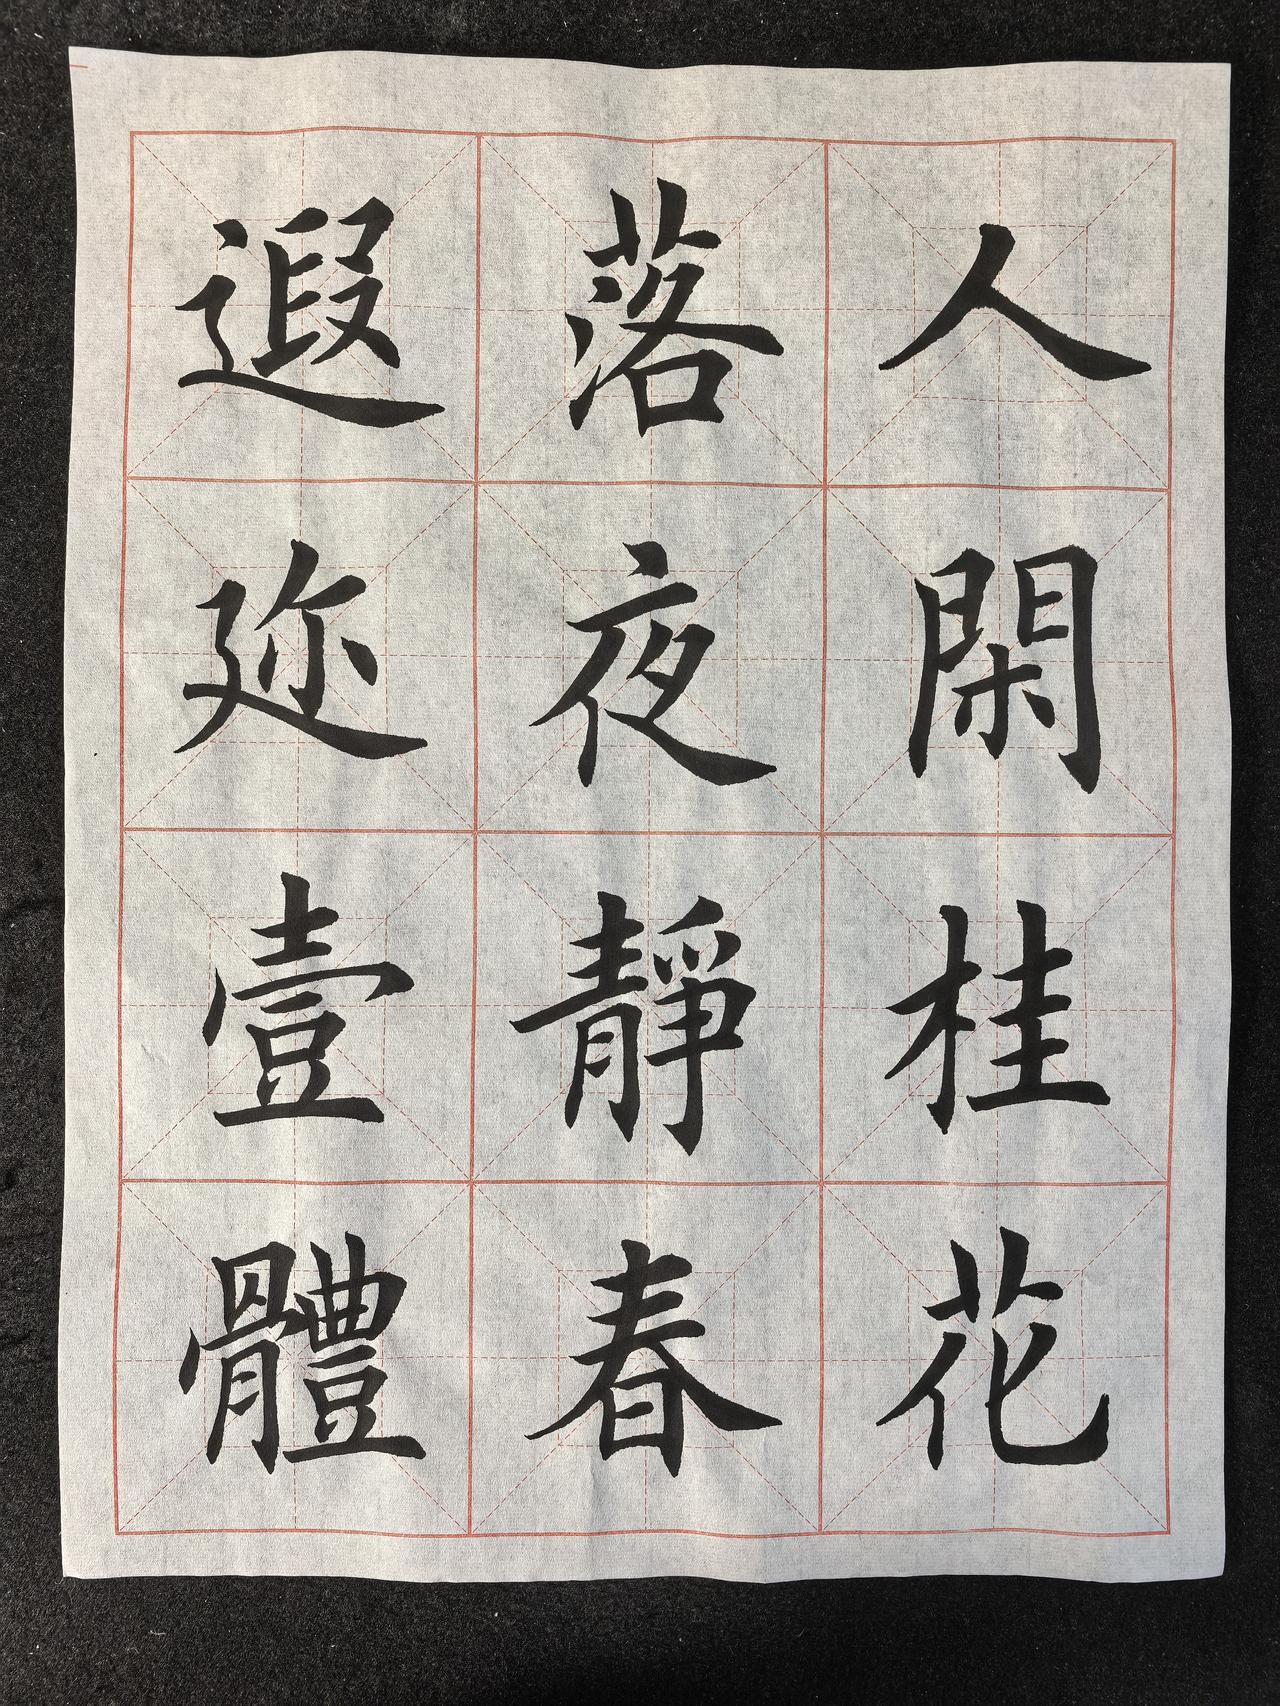 人閑桂花
落夜靜春
遐迩壹體